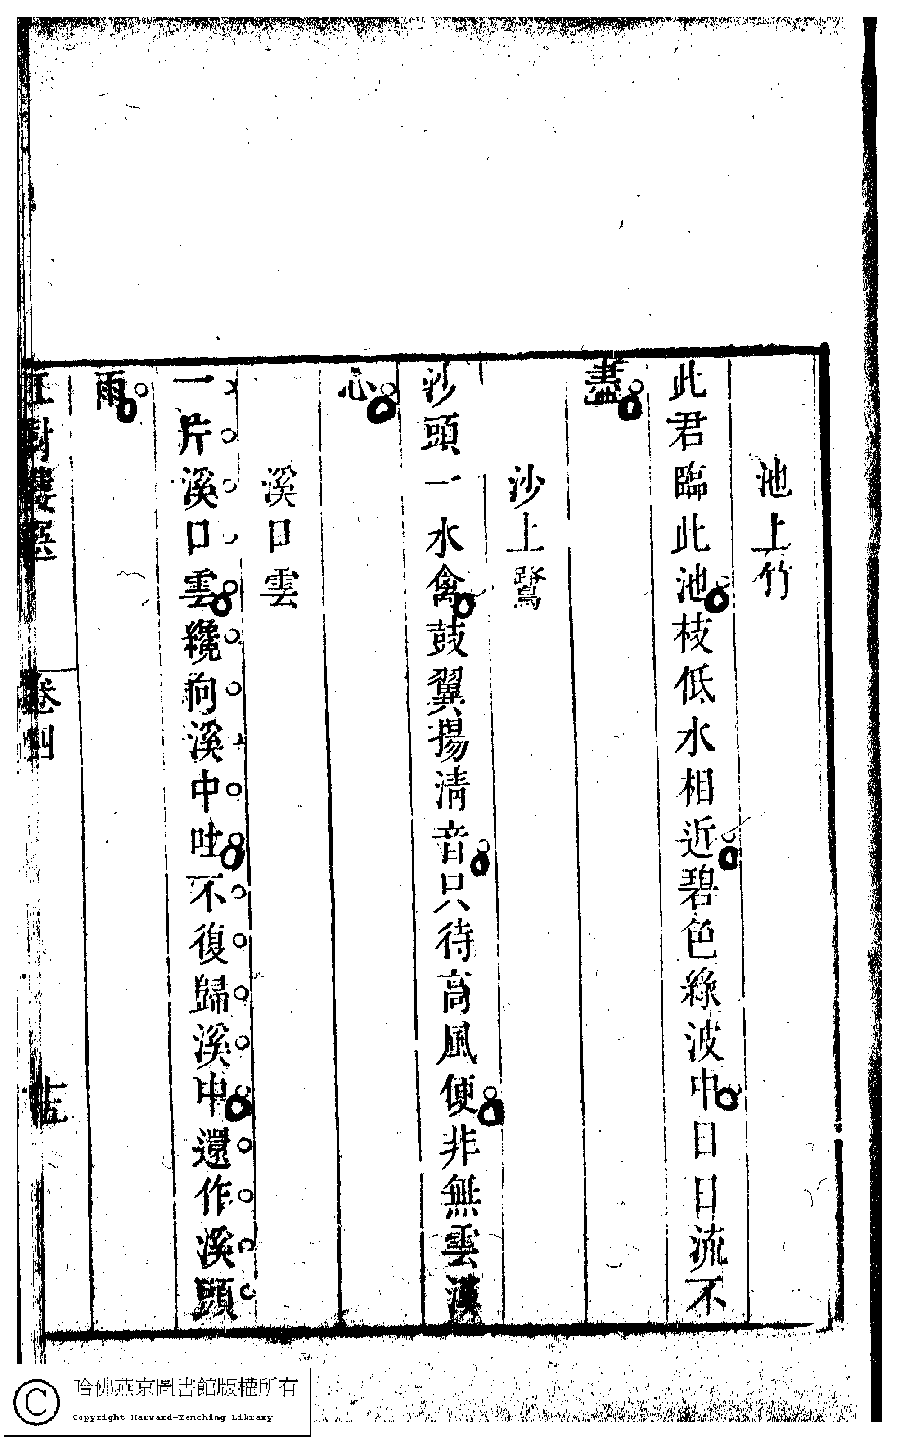 池上竹
此君臨此池枝低水相近碧色綠波中日日流不
盡
沙上鷺
沙頭一水禽鼓翼揚清音只待高風便非無雲漢
心
溪口雲
一片溪口雲纔向溪中吐不復歸溪中還作溪頭
雨
卷四
哈佛燕京圖書館版權所有
Copyright Harvard-Yenching Library